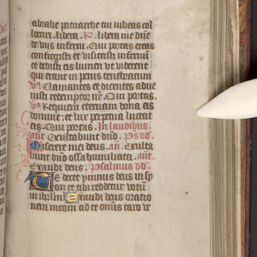 abrahe patriarche tui iubeas col
locari. libera. R. libera me dn̄e
de viis inferni. Qui portas ereas
confregisti et visitasti infernū
et dedisti eis lumen ut viderent
qui erant in penis tenebrarum
v. Clamantes et dicentes adue
nisti redemptor nr̄. Qui portas.
v. Requiem eternam dona eis
domine: et lux perpetua luceat
eis. Qui portas. In laudibus.
ant. Exultabunt dn̄o. ps. dd.
Miserere mei deus. an. Exulta
bunt dn̄o ossa humiliata. ant.
Exaudi deus. Psalmus dd.
Te decet ymnus deus in sy
on et tibi reddetur votū
in ihrlm̄. Exaudi deus oratio
nem meam ad te omnis caro ve